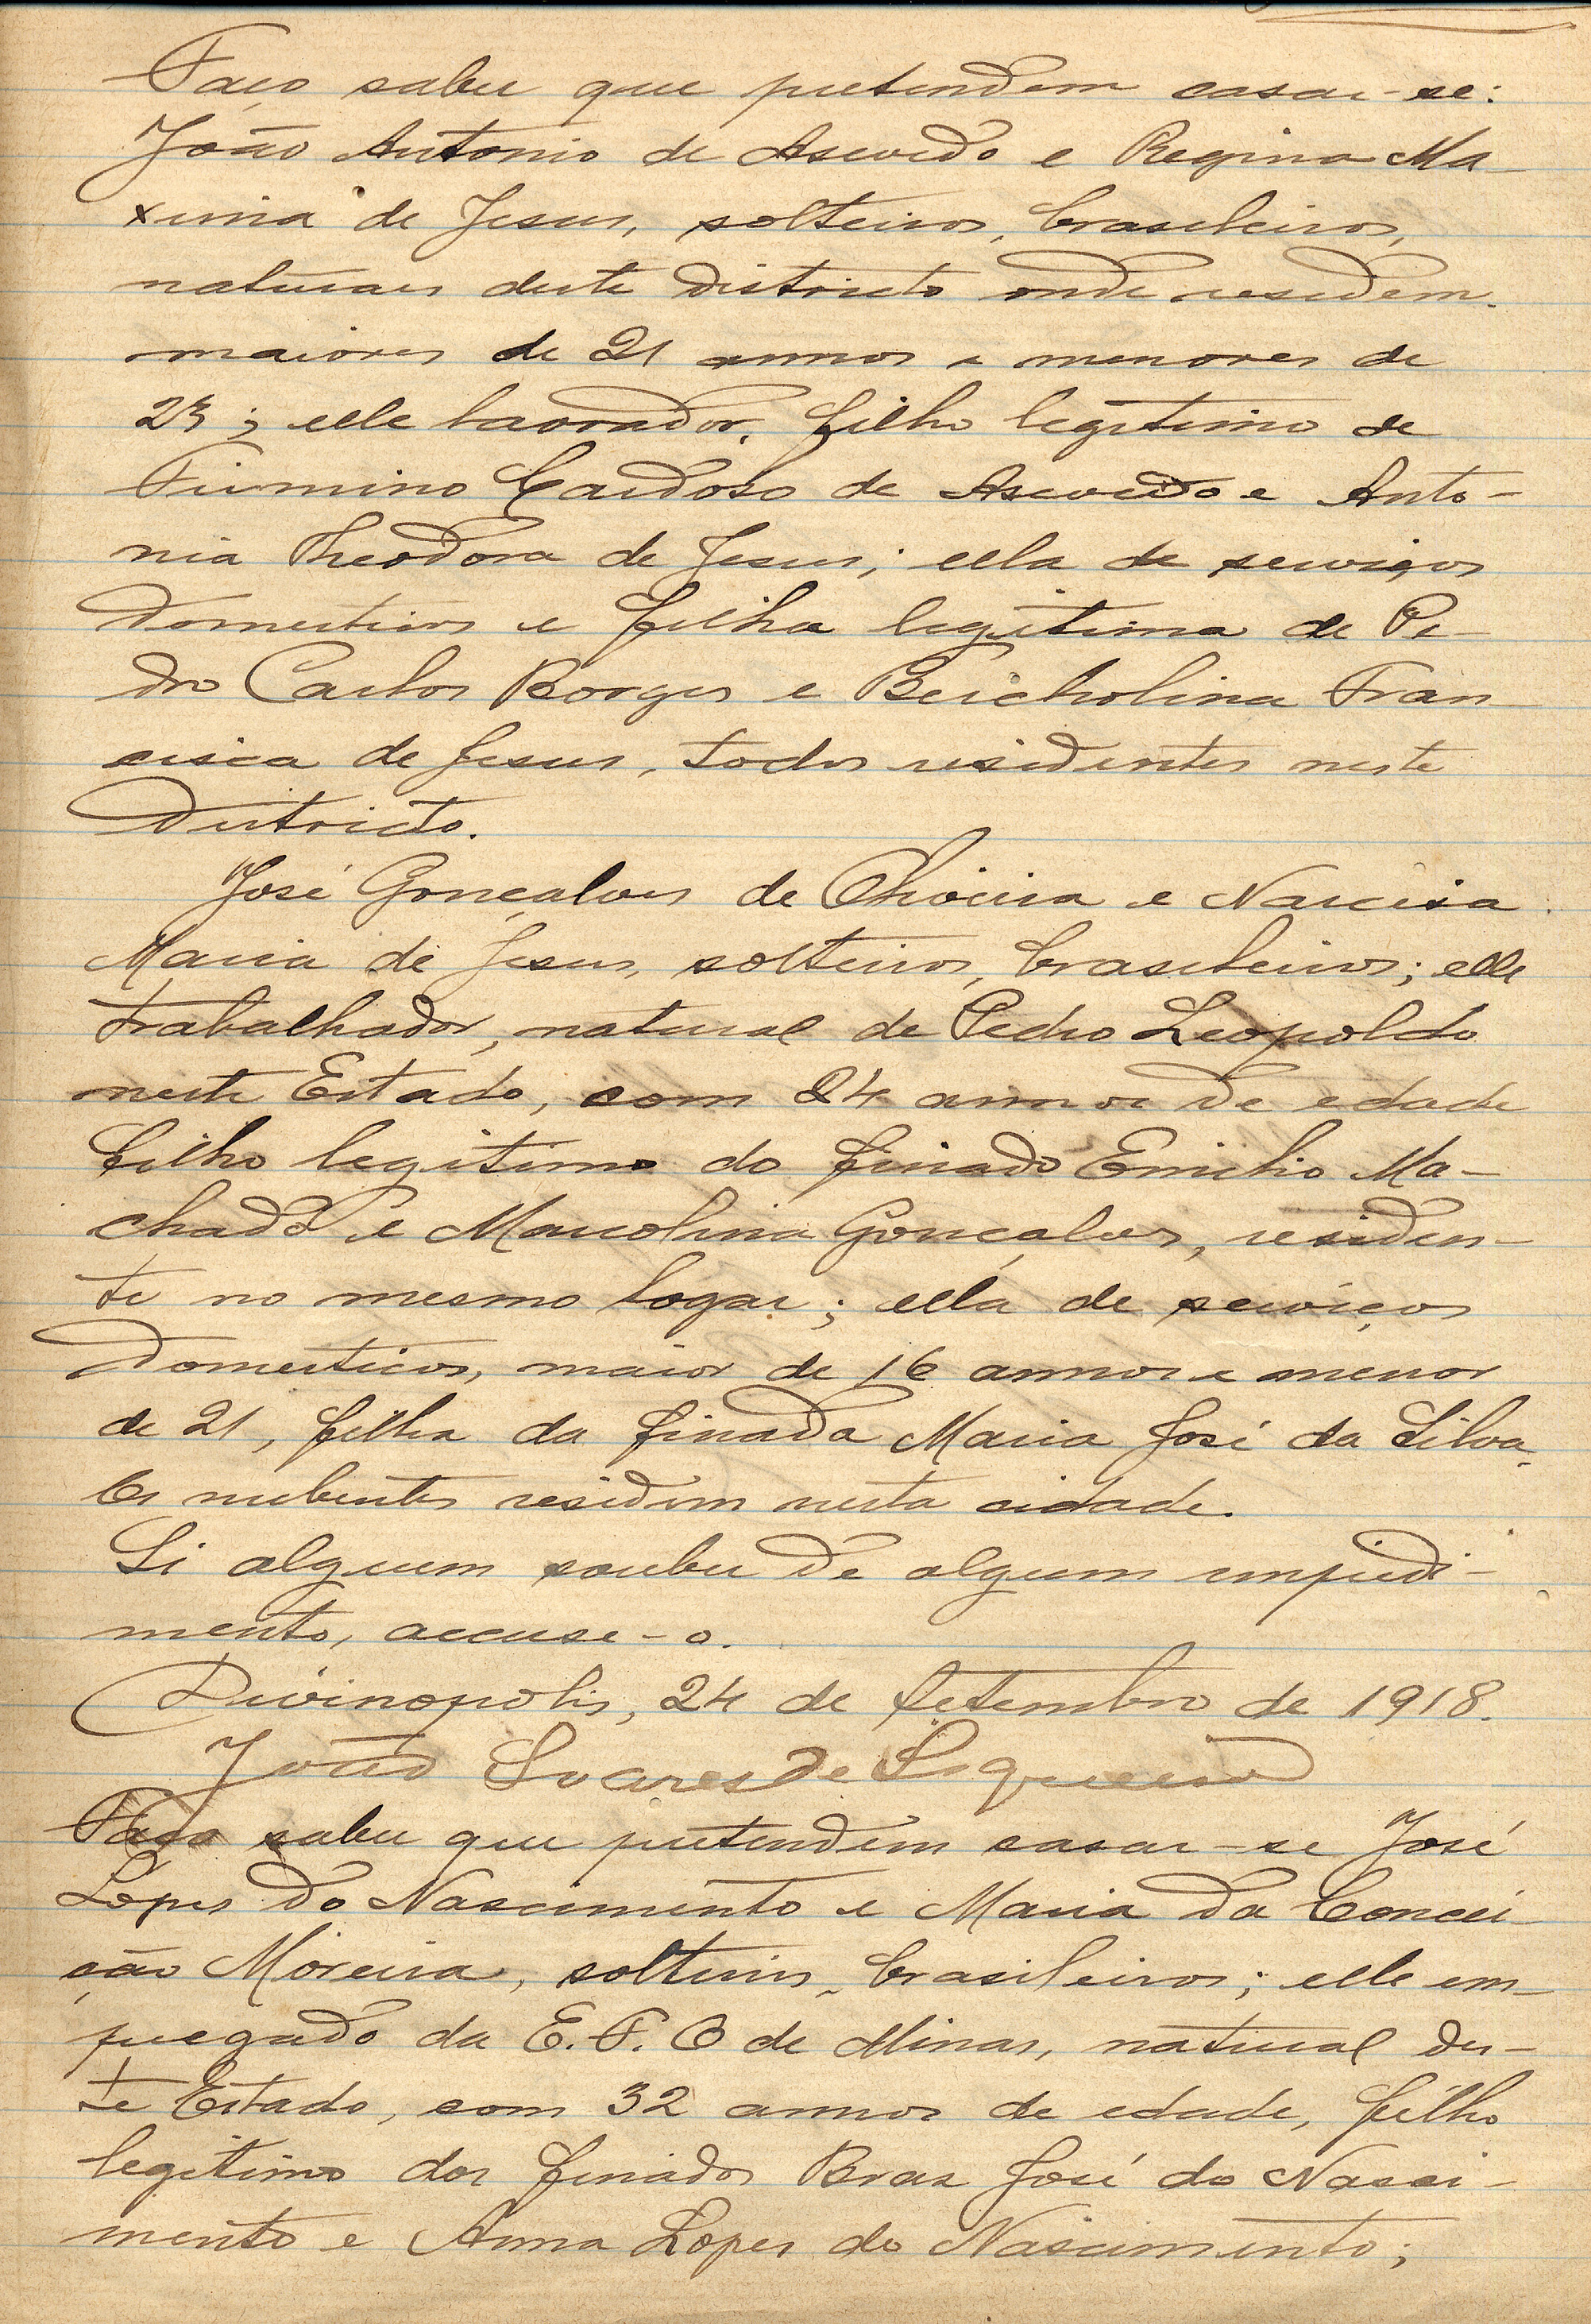 Faço saber que pretendem casar-se:
João Antonio de Asevedo e Regina Ma-
xima de Jesus, solteiros, brasileiros,
naturaes deste districto onde residem.
maiores de 21 annos e menores de
23; elle lavrador, filho legitimo de
Firmino Cardoso de Asevedo e Anto-
nia Theodora de Jesus; ella de serviços
domesticos e filha legitima de Pe-
dro Carlos Borges e Beicholina Fran-
cisca de Jesus, todos residentes neste
Districto.
José Gonçalves de Oliveira e Narcisa
Maria de Jesus, solteiros, brasileiros; elle
trabalhador, natural de Pedro Leopoldo
neste Estado, com 24 annos de edade
filho legitimo do finado Emilio Ma-
chado e Marcolina Gonçalves, residen-
te no mesmo logar; ella de serviços
domesticos, maior de 16 annos e menor
de 21, filha da finada Maria José da Silva.
Os nubentes residem nesta cidade.
Si alguem souber de algum impedi-
mento, accuse-o.
Divinopolis, 24 de Setembro de 1918.
João Soares de Siqueira
Faço saber que pretendem casar-se José
Lopes do Nascimento e Maria da Concei-
ção Moreira, solteiros, brasileiros; elle em-
pregado da E. F. O de Minas, natural des-
te Estado, com 32 annos de edade, filho
legitimo dos finados Braz José do Nasci-
mento e Anna Lopes do Nascimento;